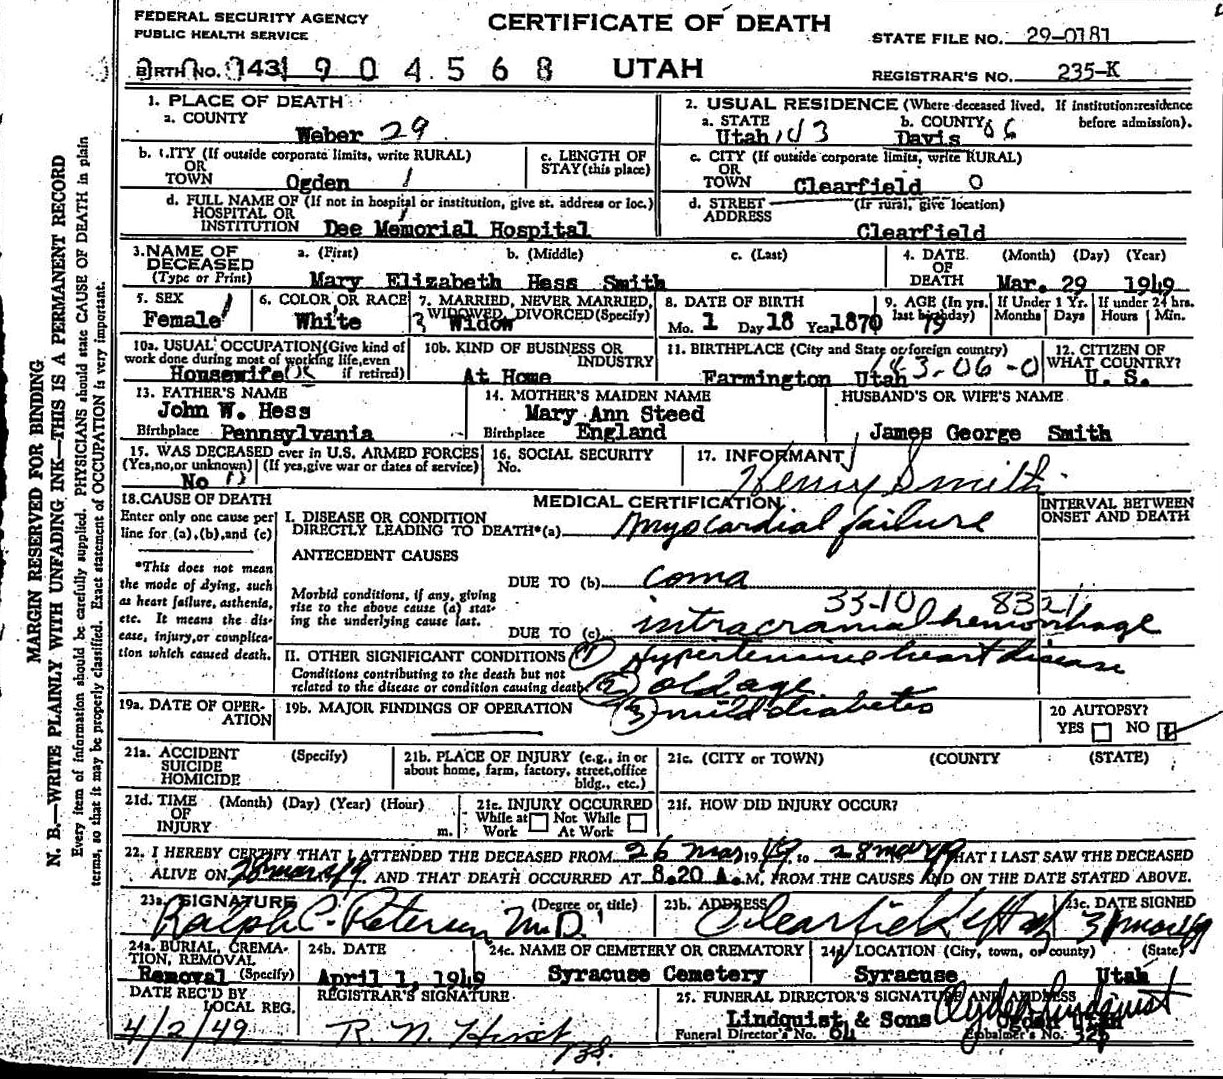 FEDERAL SECURITY AGENCY
PUBLIC HEALTH SERVICE
CERTIFICATE OF DEATH
STATE FILE NO. 29-0181
BIRTH NO. 143 1904568
UTAH
REGISTRAR'S NO. 235-K
MARGIN RESERVED FOR BINDING
N. B.—WRITE PLAINLY WITH UNFADING INK—THIS IS A PERMANENT RECORD
Every item of information should be carefully supplied. PHYSICIANS should state CAUSE OF DEATH in plain
terms, so that it may be properly classified. Exact statement of OCCUPATION is very important.
1. PLACE OF DEATH
a. COUNTY
Weber 29
2. USUAL RESIDENCE (Where deceased lived. If institution: residence
before admission).
a. STATE
Utah 143
b. COUNTY
Davis 06
b. CITY (If outside corporate limits, write RURAL)
OR
TOWN Ogden 1
c. LENGTH OF
STAY (this place)
c. CITY (If outside corporate limits, write RURAL)
OR
TOWN Clearfield 0
d. FULL NAME OF (If not in hospital or institution, give st. address or loc.)
HOSPITAL OR
INSTITUTION Dee Memorial Hospital
d. STREET (If rural, give location)
ADDRESS
Clearfield
3. NAME OF
DECEASED
(Type or Print)
a. (First) b. (Middle) c. (Last)
Mary Elizabeth Hess Smith
4. DATE
OF
DEATH
(Month) (Day) (Year)
Mar. 29 1949
5. SEX
Female 1
6. COLOR OR RACE
White
7. MARRIED, NEVER MARRIED,
WIDOWED, DIVORCED (Specify)
3 Widow
8. DATE OF BIRTH
Mo. 1 Day 18 Year 1870
9. AGE (In yrs.
last birthday)
79
If Under 1 Yr.
Months Days
If under 24 hrs.
Hours Min.
10a. USUAL OCCUPATION (Give kind of
work done during most of working life, even
if retired)
Housewife
10b. KIND OF BUSINESS OR
INDUSTRY
At Home
11. BIRTHPLACE (City and State or foreign country)
Farmington Utah 143-06-0
12. CITIZEN OF
WHAT COUNTRY?
U. S.
13. FATHER'S NAME
John W. Hess
Birthplace Pennsylvania
14. MOTHER'S MAIDEN NAME
Mary Ann Steed
Birthplace England
HUSBAND'S OR WIFE'S NAME
James George Smith
15. WAS DECEASED ever in U.S. ARMED FORCES
(Yes, no, or unknown) (If yes, give war or dates of service)
No 0
16. SOCIAL SECURITY
No.
17. INFORMANT
Henry Smith
18. CAUSE OF DEATH
Enter only one cause per
line for (a), (b), and (c)
*This does not mean
the mode of dying, such
as heart failure, asthenia,
etc. It means the dis-
ease, injury, or complica-
tion which caused death.
MEDICAL CERTIFICATION
INTERVAL BETWEEN
ONSET AND DEATH
I. DISEASE OR CONDITION
DIRECTLY LEADING TO DEATH*(a) myocardial failure
ANTECEDENT CAUSES
Morbid conditions, if any, giving
rise to the above cause (a) stat-
ing the underlying cause last.
DUE TO (b) coma
33-10 8321
DUE TO (c) intracranial hemorrhage
II. OTHER SIGNIFICANT CONDITIONS
Conditions contributing to the death but not
related to the disease or condition causing death
(1) Hypertensive heart disease
(2) old age
(3) mild diabetes
19a. DATE OF OPER-
ATION
19b. MAJOR FINDINGS OF OPERATION
20 AUTOPSY?
YES NO
21a. ACCIDENT (Specify)
SUICIDE
HOMICIDE
21b. PLACE OF INJURY (e.g., in or
about home, farm, factory, street, office
bldg., etc.)
21c. (CITY or TOWN) (COUNTY) (STATE)
21d. TIME (Month) (Day) (Year) (Hour)
OF
INJURY m.
21e. INJURY OCCURRED
While at Not While
Work At Work
21f. HOW DID INJURY OCCUR?
22. I HEREBY CERTIFY THAT I ATTENDED THE DECEASED FROM 26 mar 1949, TO 28 mar 49 THAT I LAST SAW THE DECEASED
ALIVE ON 28 mar 49 AND THAT DEATH OCCURRED AT 8.20 A.M, FROM THE CAUSES AND ON THE DATE STATED ABOVE.
23a. SIGNATURE (Degree or title)
Ralph C. Petersen M.D.
23b. ADDRESS
Clearfield Utah
23c. DATE SIGNED
31 mar 49
24a. BURIAL, CREMA-
TION, REMOVAL
Removal (Specify)
24b. DATE
April 1, 1949
24c. NAME OF CEMETERY OR CREMATORY
Syracuse Cemetery
24d. LOCATION (City, town, or county) (State)
Syracuse Utah
DATE REC'D BY
LOCAL REG.
4/2/49
REGISTRAR'S SIGNATURE
R. N. Hirst
25. FUNERAL DIRECTOR'S SIGNATURE AND ADDRESS
Clyde Lindquist
Lindquist & Sons Ogden Utah
Funeral Director's No. 64 Embalmer's No. 325